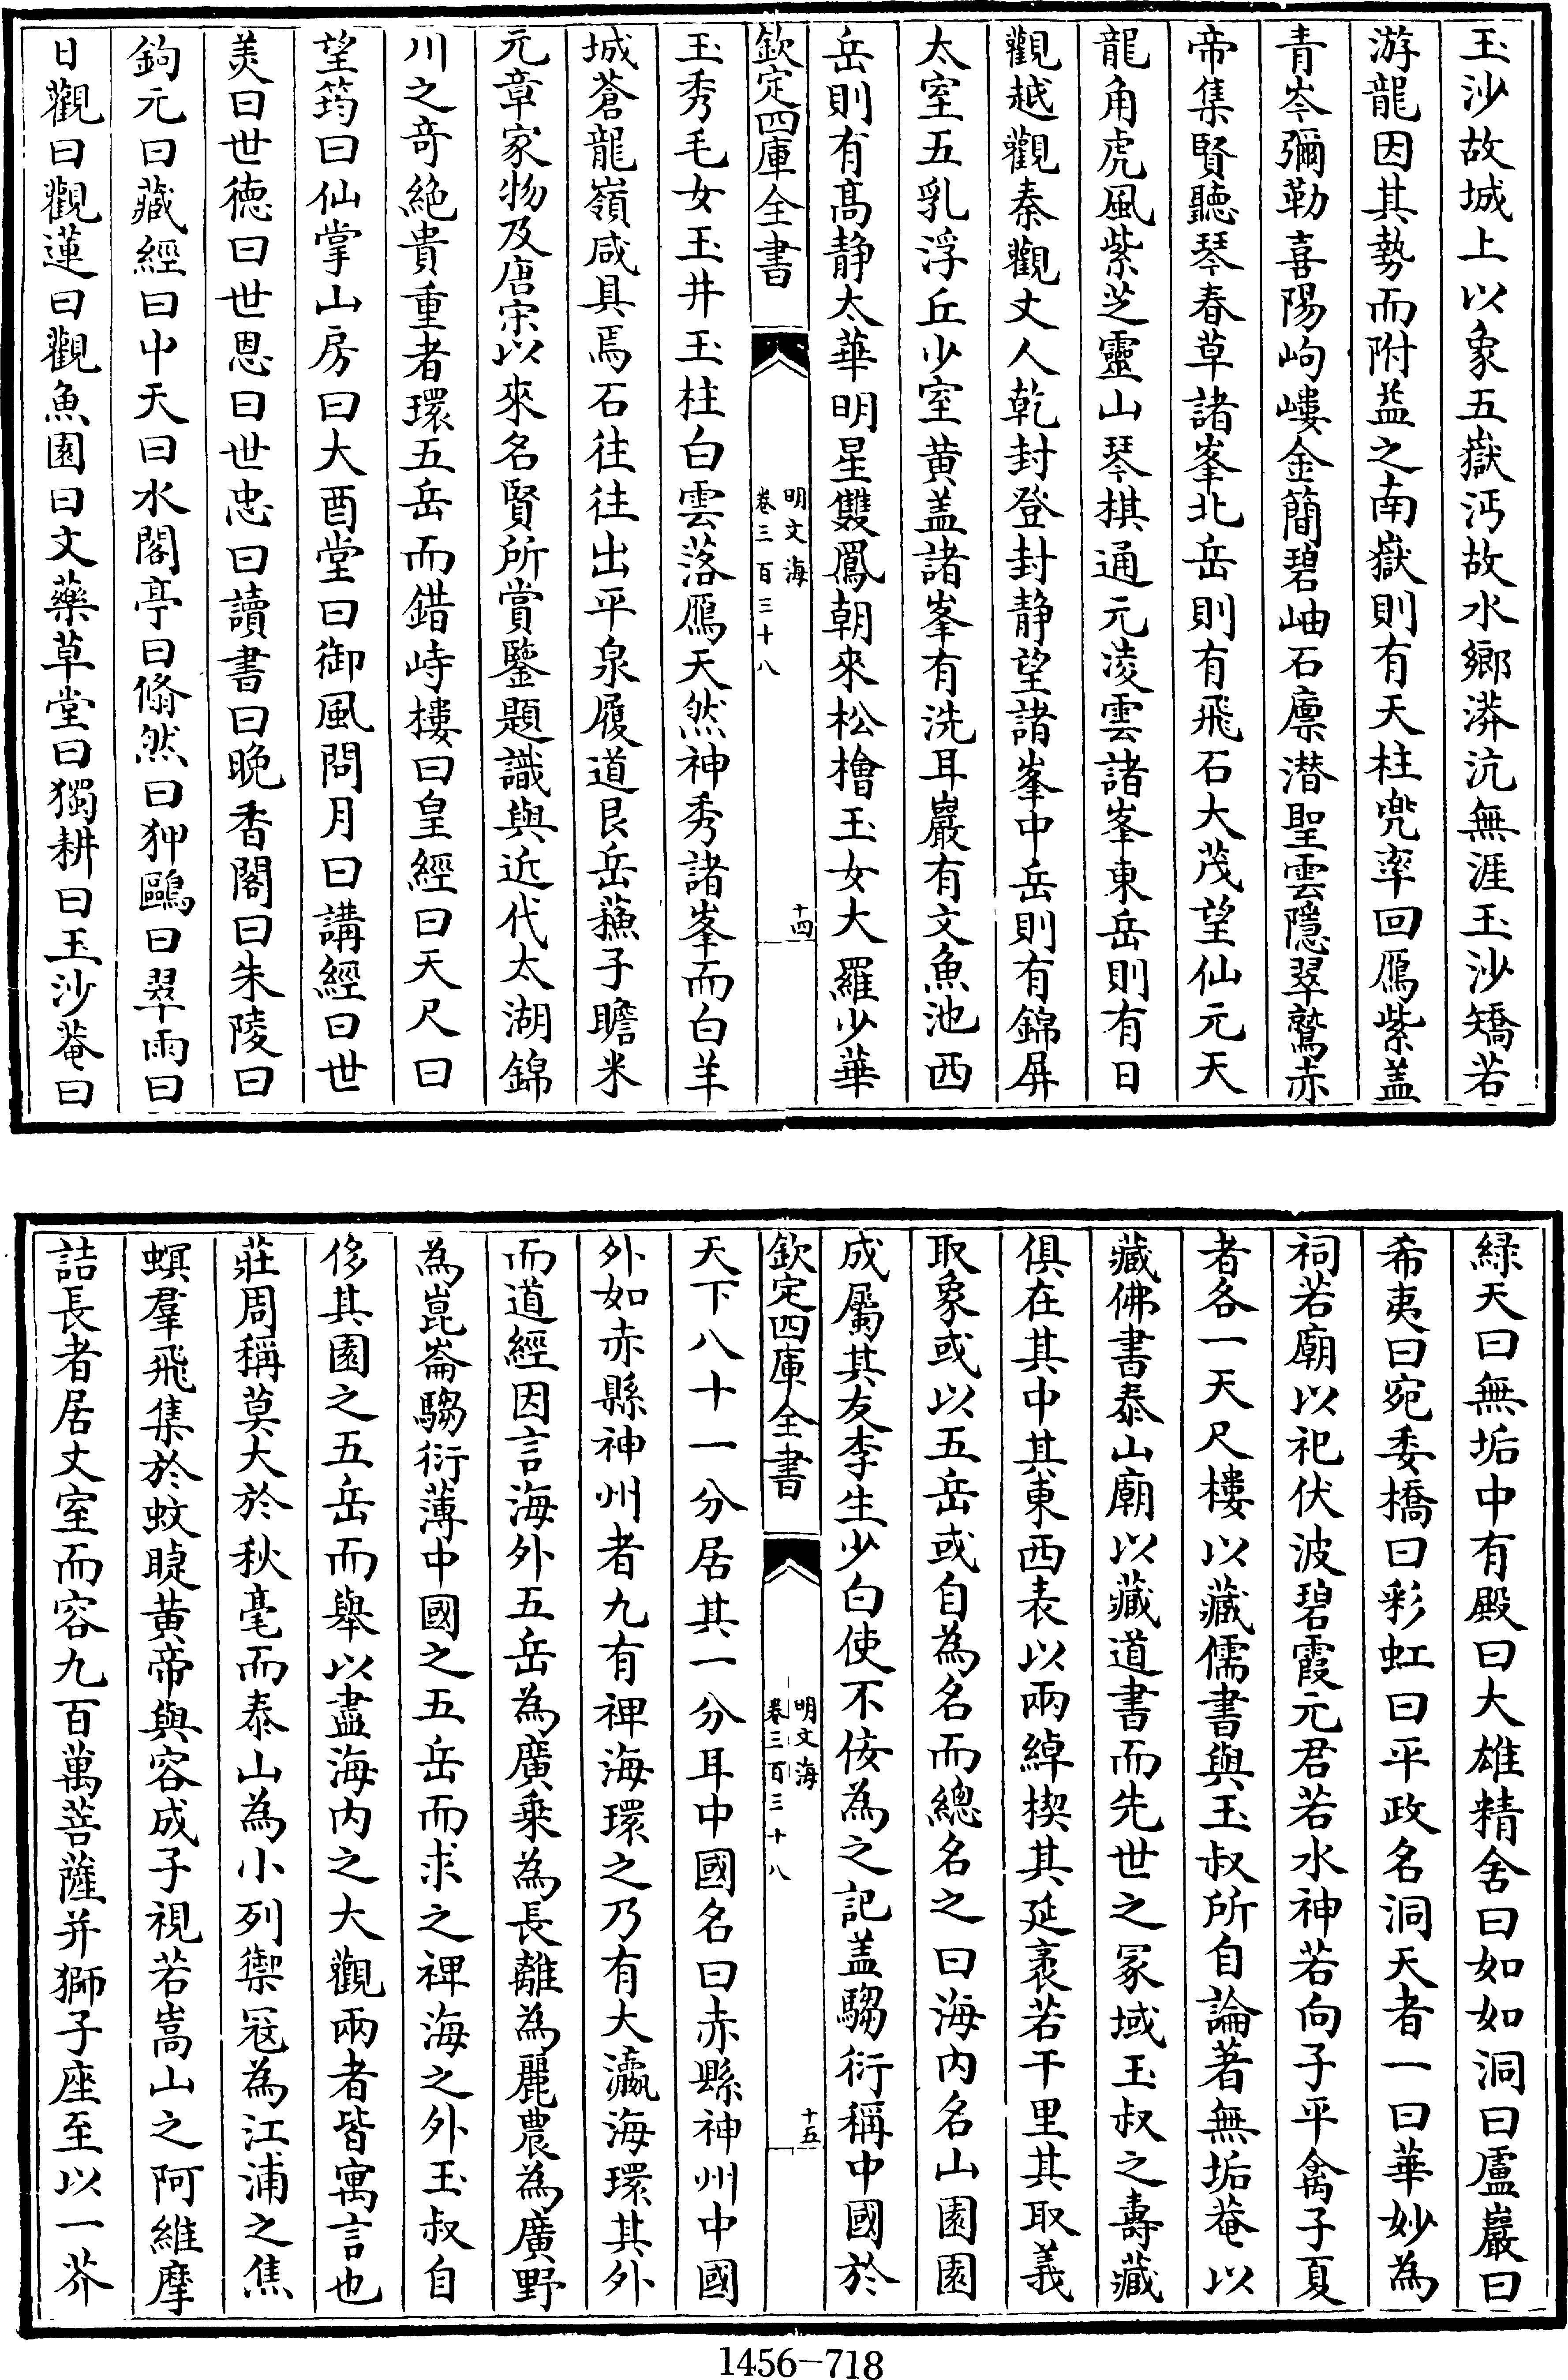 玉沙故城上以象五嶽沔故水鄉漭沆無涯玉沙矯若
游龍因其勢而附益之南嶽則有天柱兜率回鴈紫蓋
青岑彌勒喜陽岣嶁金簡碧岫石廪潜聖雲隱翠鷲赤
帝集賢聽琴春草諸峯北岳則有飛石大茂望仙元天
龍角虎風紫芝靈山琴棋通元凌雲諸峯東岳則有日
觀越觀秦觀丈人乾封登封静望諸峯中岳則有錦屏
太室五乳浮丘少室黄盖諸峯有洗耳巖有文魚池西
岳則有髙静太華明星雙鳳朝來松檜玉女大羅少華
欽定四庫全書
明文海
卷三百三十八
十四
玉秀毛女玉井玉柱白雲落鴈天然神秀諸峯而白羊
城蒼龍嶺咸具焉石往往出平泉履道艮岳蘓子瞻米
元章家物及唐宋以來名賢所賞鑒題識與近代太湖錦
川之竒絶貴重者環五岳而錯峙樓曰皇經曰天尺曰
望筠曰仙掌山房曰大酉堂曰御風問月曰講經曰世
美曰世徳曰世恩曰世忠曰讀書曰晩香閣曰朱陵曰
鉤元曰藏經曰中天曰水閣亭曰翛然曰狎鷗曰翠雨曰
日觀曰觀蓮曰觀魚園曰文藥草堂曰獨耕曰玉沙菴曰
緑天曰無垢中有殿曰大雄精舍曰如如洞曰盧巖曰
希夷曰宛委橋曰彩虹曰平政名洞天者一曰華妙為
祠若廟以祀伏波碧霞元君若水神若向子平禽子夏
者各一天尺樓以藏儒書與玉叔所自論著無垢菴以
藏佛書泰山廟以藏道書而先世之冢域玉叔之夀藏
俱在其中其東西表以兩綽楔其延袤若干里其取義
取象或以五岳或自為名而總名之曰海内名山園園
成屬其友李生少白使不佞為之記盖騶衍稱中國於
欽定四庫全書
明文海
卷三百三十八
十五
天下八十一分居其一分耳中國名曰赤縣神州中國
外如赤縣神州者九有裨海環之乃有大瀛海環其外
而道經因言海外五岳為廣乗為長離為麗農為廣野
為崑崙騶衍薄中國之五岳而求之裨海之外玉叔自
侈其園之五岳而舉以盡海内之大觀兩者皆寓言也
莊周稱莫大於秋毫而泰山為小列禦冦為江浦之焦
螟羣飛集於蚊睫黄帝與容成子視若嵩山之阿維摩
詰長者居丈室而容九百萬菩薩并獅子座至以一芥
1456-718